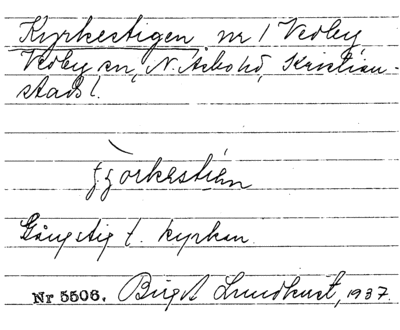 Kyrkestigen nr 1 Vedby
Vedby sn, N. Åsbo hd, Kristian-
stads l.
Gångstig t. kyrkan.
Nr 5506. Birgit Lundkvist, 1937.